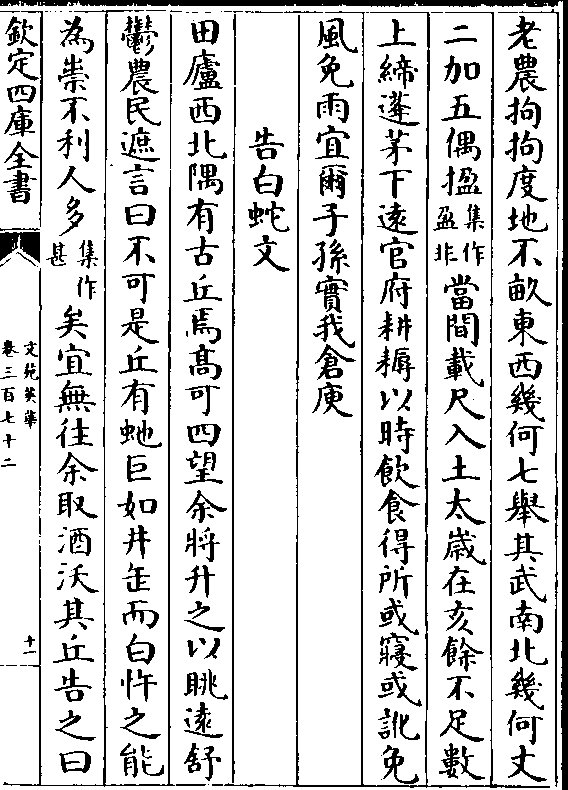 老農拘拘度地不畝東西幾何七舉其武南北幾何丈
二加五偶揾集作盈非當間載尺入土太歲在亥餘不足數
上締蘧茅下遠官府耕耨以時飲食得所或寢或訛免
風免雨宜爾子孫實我倉庾
告白蛇文
田廬西北隅有古丘焉高可四望余將升之以眺遠舒
鬱農民遮言曰不可是丘有虵巨如井缶而白忤之能
為祟不利人多集作甚矣宜無往余取酒沃其丘告之曰
欽定四庫全書
文苑英華
卷三百七十二
十一